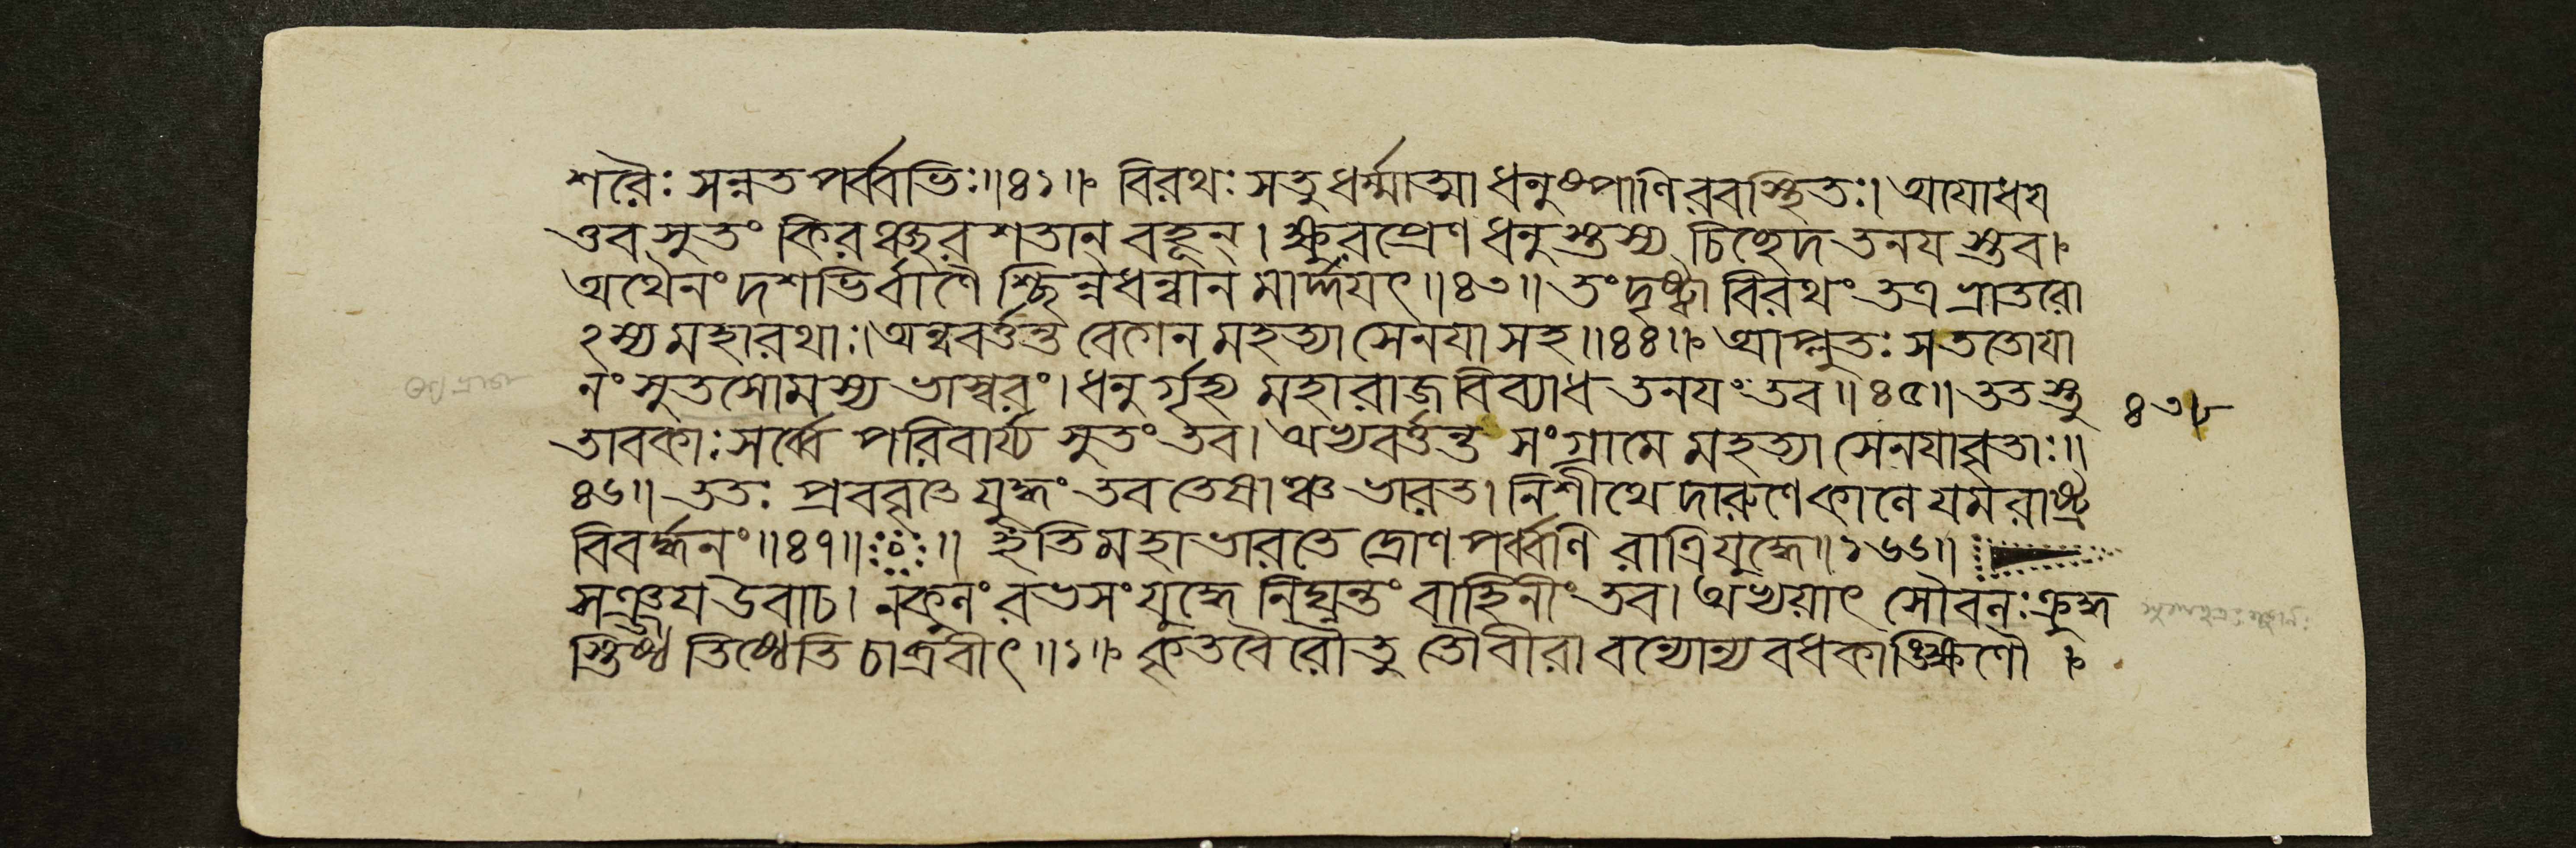 শরৈঃ সন্নতপর্ব্বভিঃ॥৪১॥ বিরথঃ সতু ধর্ম্মাত্মা ধনুষ্পাণিরবস্থিতঃ। অযোধয
ত্তব সুতং কিরঞ্ছরশতান্ বহূন্। ক্ষুরপ্রেণ ধনুস্তস্য চিচ্ছেদ তনযস্তব।
অথৈনং দশভির্বাণৈশ্ছিন্নধন্বানমার্দ্দযৎ॥৪৩॥ তং দৃষ্ট্বা বিরথং তত্র ভ্রাতরো
ঽস্য মহারথাঃ। অন্ববর্ত্তন্ত বেগেন মহত্যা সেনযা সহ॥৪৪॥ আপ্লুতঃ স ততো যা
নং সুতসোমস্য ভাস্বরং। ধনুর্গৃহ্য মহারাজ বিব্যাধ তনযং তব॥৪৫॥ ততস্তু
৪৩৮
তাবকাঃ সর্ব্বে পরিবার্য্য সুতং তব। অভ্যবর্ত্তন্ত সংগ্রামে মহত্যা সেনযাবৃতাঃ॥
৪৬॥ ততঃ প্রববৃতে যুদ্ধং তব তেষাঞ্চ ভারত। নিশীথে দারুণে কালে যমরাষ্ট্র
বিবর্দ্ধনং॥৪৭॥ ॥ ইতি মহাভারতে দ্রোণপর্ব্বণি রাত্রিযুদ্ধে॥১৬৬॥
সঞ্জয উবাচ। নকুলং রভসং যুদ্ধে নিঘ্নন্তং বাহিনীং তব। অভ্যয়াৎ সৌবলঃ ক্রুদ্ধ
স্তিষ্ঠ তিষ্ঠেতি চাব্রবীৎ॥১॥ কৃতবৈরৌ তু তৌ বীরাবন্যোন্যবধকাঙ্ক্ষিণৌ।